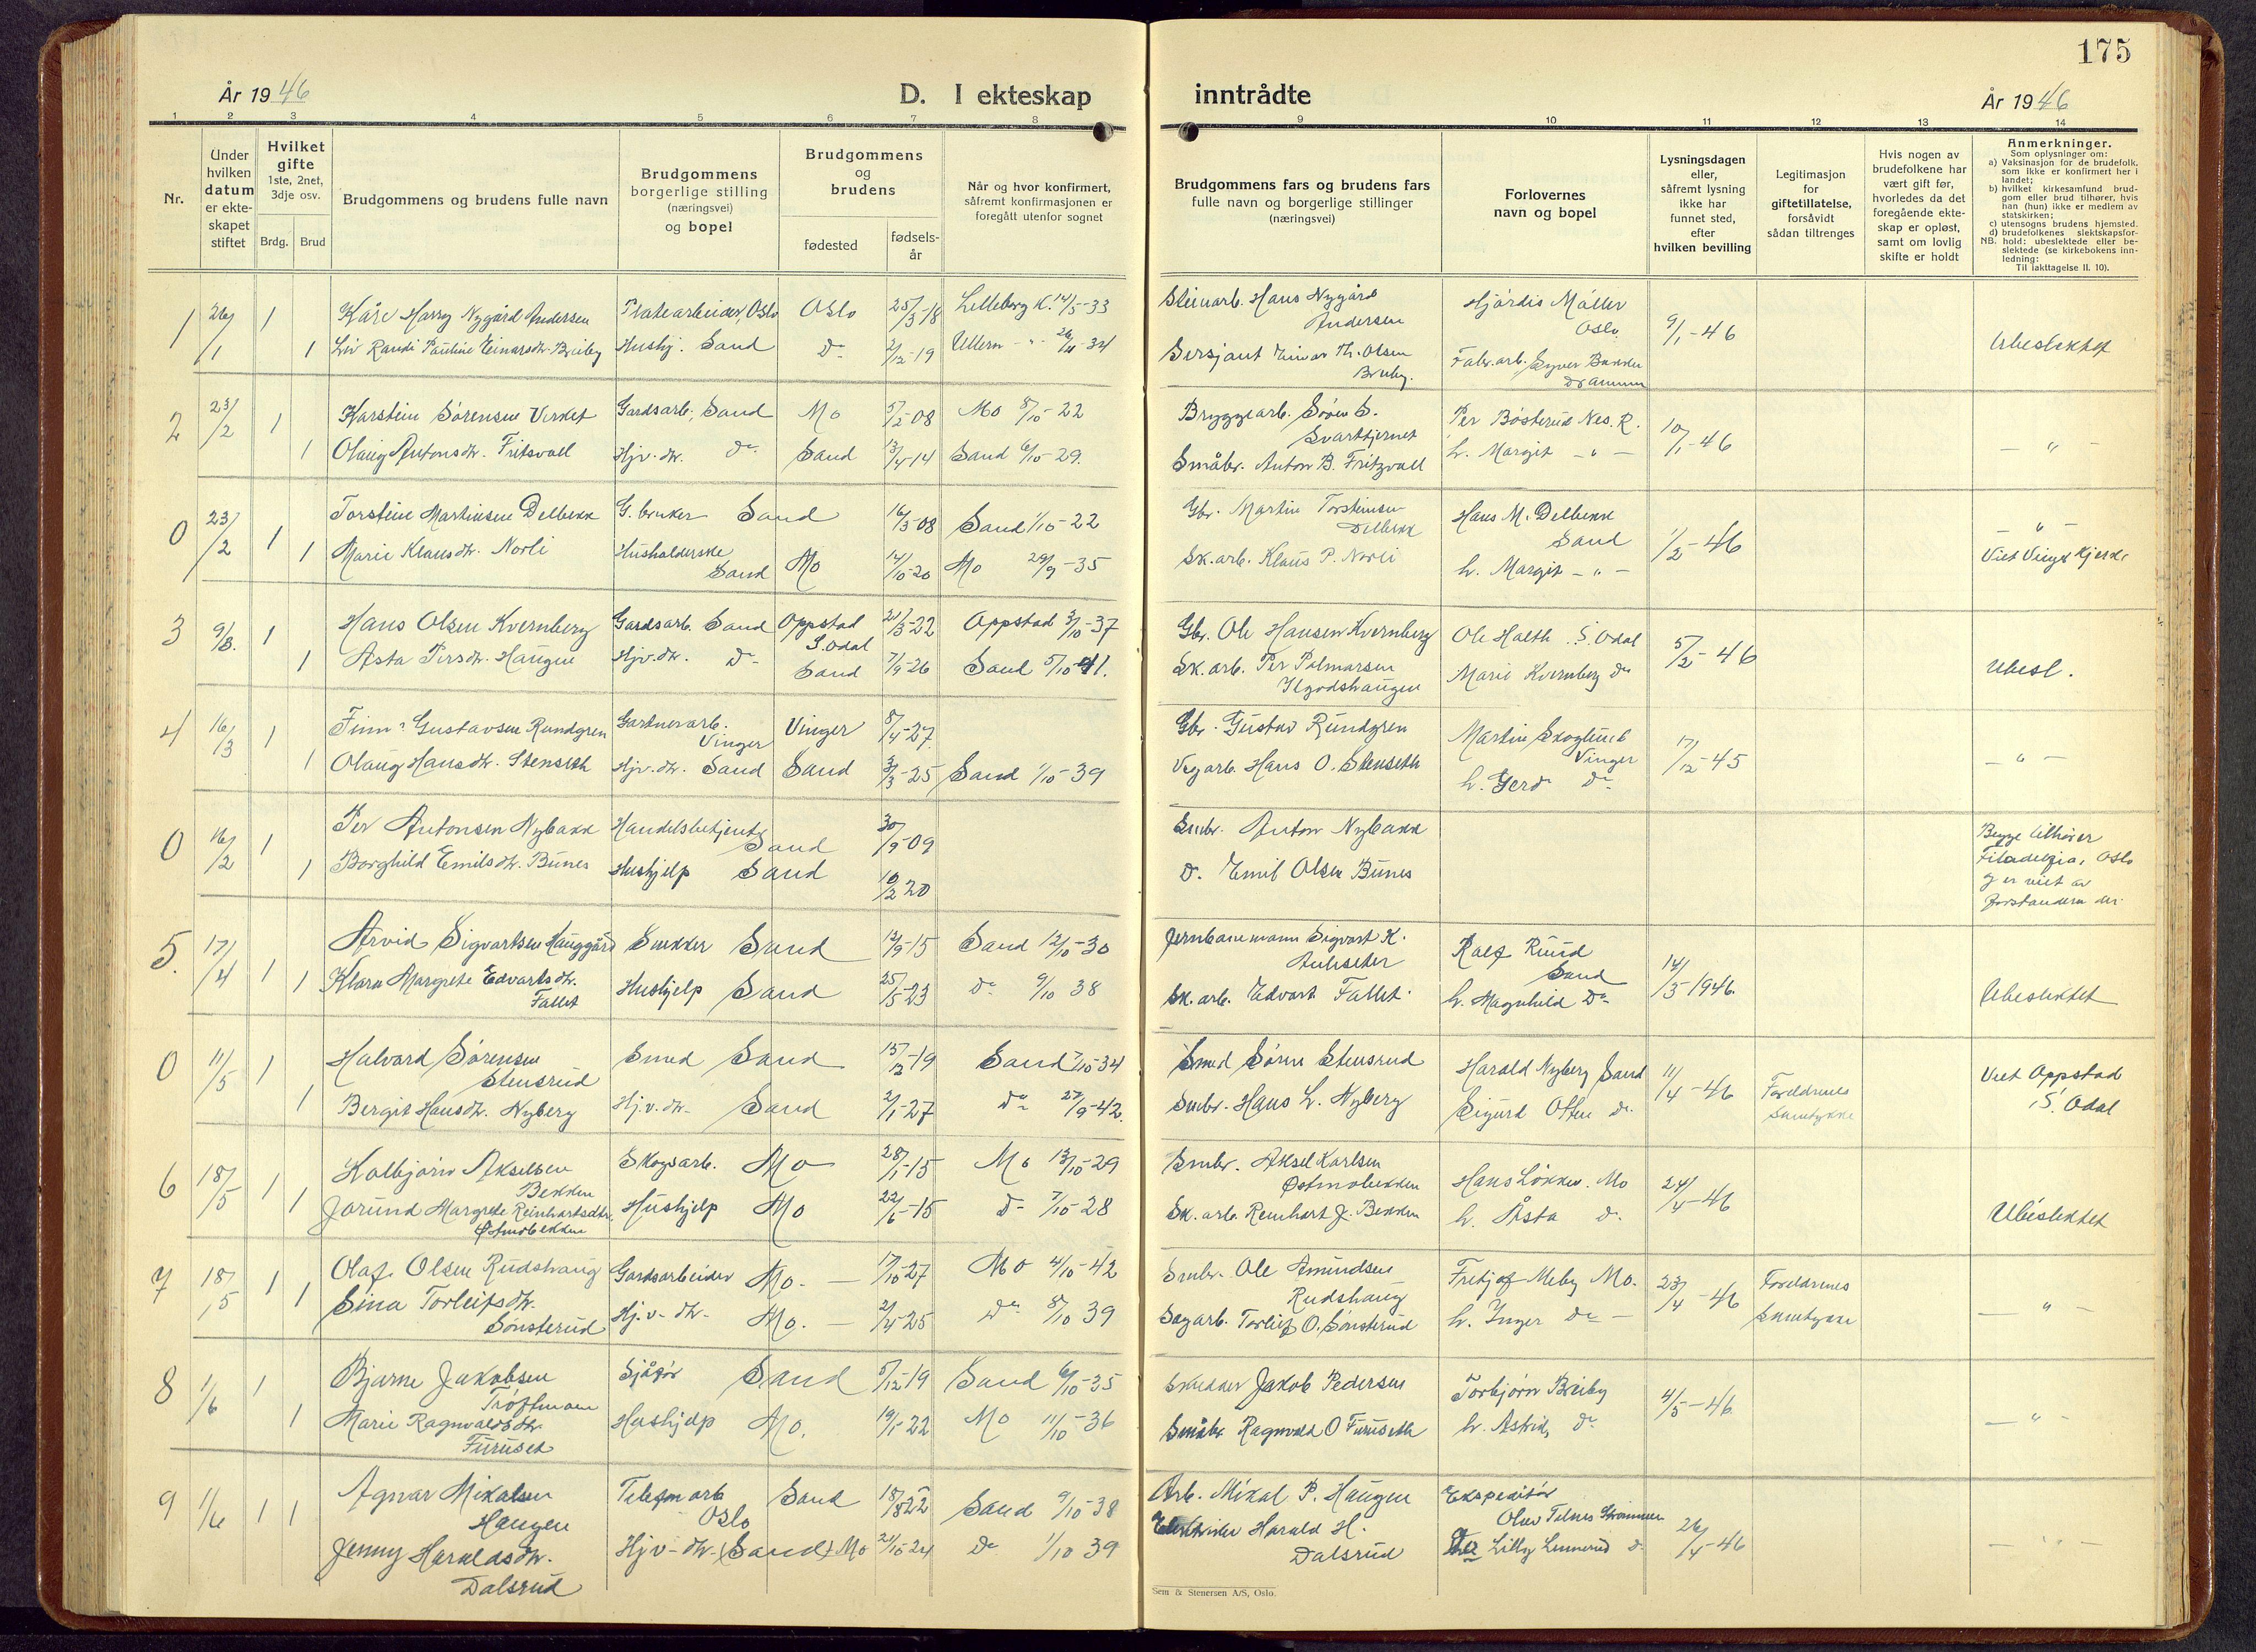 175
År 1946
D. I ekteskap
inntrådte
År 1946
1 2 3 4 5 6 7 8 9 10 11 12 13 14
Nr.
Under
hvilken
datum
er ekte-
skapet
stiftet
Hvilket
gifte
1ste, 2net,
3dje osv.
Brdg. Brud
Brudgommens og brudens fulle navn
Brudgommens
borgerlige stilling
(næringsvei)
og bopel
Brudgommens
og
brudens
fødested
fødsels-
år
Når og hvor konfirmert,
såfremt konfirmasjonen er
foregått utenfor sognet
Brudgommens fars og brudens fars
fulle navn og borgerlige stillinger
(næringsvei)
Forlovernes
navn og bopel
Lysningsdagen
eller,
såfremt lysning
ikke har
funnet sted,
efter
hvilken bevilling
Legitimasjon
for
giftetillatelse,
forsåvidt
sådan tiltrenges
Hvis nogen av
brudefolkene har
vært gift før,
hvorledes da det
foregående ekte-
skap er opløst,
samt om lovlig
skifte er holdt
Anmerkninger.
Som oplysninger om:
a) Vaksinasjon for de brudefolk.
som ikke er konfirmert her i
landet;
b) hvilket kirkesamfund brud-
gom eller brud tilhører, hvis
han (hun) ikke er medlem av
statskirken;
c) utensogns brudens hjemsted.
d) brudefolkenes slektskapsfor-
hold: ubeslektede eller be-
slektede (se kirkebokens inn-
ledning:
NB.
Til iakttagelse II. 10).
1 26/1 1 Kåre Harry Nygård Andersen Platearbeider, Oslo Oslo 25/3 18 Lilleborg K. 14/5-33
1 Liv Randi Pauline Einarsdtr. Breiby Hushj. Sand do 2/12-19 Ullern -"- 26/4-34
Steinarb. Hans Nygård
Andersen
Sersjant Einar Th. Olsen
Breiby.
Hjördis Möller
Oslo
Fabr.arb.
Drammen
9/1-46
Ubeslektet
2 23/2 1 Karstein Sørensen Verket Gardsarb., Sand Mo 5/2-08 Mo 8/10-22
1 Olaug Antonsdtr. Fritsvoll Hjv.dtr. do Sand 13/4-14 Sand 6/10-29.
Bryggearb. Sören S.
Svarttjernet
Småbr. Anton B. Fritzvoll
Per Bösterud Nes. R.
h. Margit -"-
10/1-46
-"-
0 23/2 1 Torstein Martinsen Delbekk G.bruker Sand 16/3-08 Sand 1/10-22
1 Marie Klausdtr. Norli Husholderske
Sand Mo 14/10-20 Mo 29/9-35
Gbr. Martin Torsteinsen
Delbekk
Sk.arb. Klaus P. Norli
Hans M. Delbekk
Sand
h. Margit -"-
1/2-46
-"-
Viet Kjerke
3 9/3. 1 Hans Olsen Kvernberg Gardsarb. Sand Oppstad
S.Odal 21/3-22 Oppstad 3/10-37
1 Åsta Persdtr. Haugen Hjv.dtr. do Sand 7/9-26 Sand 5/10-41.
Gbr. Ole Hansen Kvernberg
Sk.arb. Per Palmarsen
Ilgodshaugen
Ole Halth S. Odal
Marie Kvernberg do
5/2-46
Ubesl.
4 16/3 1 Finn Gustavsen Rundgren Gartnerarb.
Vinger Vinger 8/4-27.
1 Olaug Hansdtr. Stenseth Hjv.dtr. Sand Sand 3/3-25 Sand 1/10-39
Gbr. Gustav Rundgren
Vegarb. Hans O. Stenseth
Martin Skoglund
Vinger
h. Gerd do
17/12-45
-"-
0 16/2 1 Per Antonsen Nybakk Handelsbetjent
Sand 30/9-09
1 Borghild Emilsdtr. Bunes Hushjelp Sand 19/2 20
Smbr. Anton Nybakk
D. Emil Olsen Bunes
Begge tilhører
Filadelfia, Oslo
og er viet av
forstanderen der.
5. 17/4 1 Arvid Sigvartsen Hauggård Snekker Sand 12/9-15 Sand 12/10-30
1 Klara Margrete Edvartsdtr.
Fallet Hushjelp Sand 25/5-23 do 9/10 38
Jernbanemann Sigvart K.
Sk.arb. Edvart Fallet
Ralf Ruud
Sand
h. Magnhild do
14/3-1946.
Ubeslektet
0 11/5 1 Halvard Sørensen
Stensrud Smed Sand 15/12-19 Sand 7/10-34
1 Bergit Hansdtr. Nyberg Hj.v.dtr. Sand 2/1-27 do 27/9-42.
Smed Sørn Stensrud
Smbr. Hans L. Nyberg
Harald Nyberg Sand
Sigurd do
11/4-46
Foreldrenes
samtykke
Viet Oppstad
S. Odal
6 18/5 1 Kolbjørn Akselsen
Bekken Skogsarb. Mo 28/1-15 Mo 13/10-29
1 Jorund Margrete Reinhartsdtr.
Østmobekken Hushjelp Mo 22/6-15 do 7/10-28
Smbr. Aksel Karlsen
Østmobekken
Sk.arb. Reinhart J. Bekken
Hans Løkken. Mo
h. Åsta do
24/4-46
Ubeslektet
7 18/5 1 Olaf Olsen Rudshaug Gardsarbeider Mo. 17/10-27 Mo 4/10-42
1 Sina Torleifsdtr.
Sønsterud Hj.v.dtr. Mo. 2/4-25 do 8/10 39
Smbr. Ole Amundsen
Rudshaug
Sagarb. Torleif O. Sønsterud
Fritjof Meby Mo.
h. Inger do
23/4-46
Foreldrenes
samtykke
-"-
8 1/6 1 Bjarne Jakobsen
Trøftmoen Sjåfør Sand 5/12-19 Sand 6/10-35
1 Marie Ragnvaldsdtr.
Furuset Hushjelp Mo. 19/1-22 Mo 11/10-36
Snekker Jakob Pedersen
Småbr Ragnvald O Furuseth
Torbjørn Breiby
h. Astrid, do
4/5-46
-"-
9 1/6 1 Agnar Mikalsen
Haugen Telefonarb
Oslo Sand 18/8-22 Sand 9/10-38
1 Jenny Haraldsdtr.
Dalsrud Hjv.dtr. (Sand) Mo 21/10-24 do 1/10 39
Arb. Mikal P. Haugen
Harald H.
Dalsrud
Ekspeditör
Olav Tilnes Strømmen
Lilly Linnerud do
26/4-46
-"-
Sem & Stenersen A/S, Oslo.